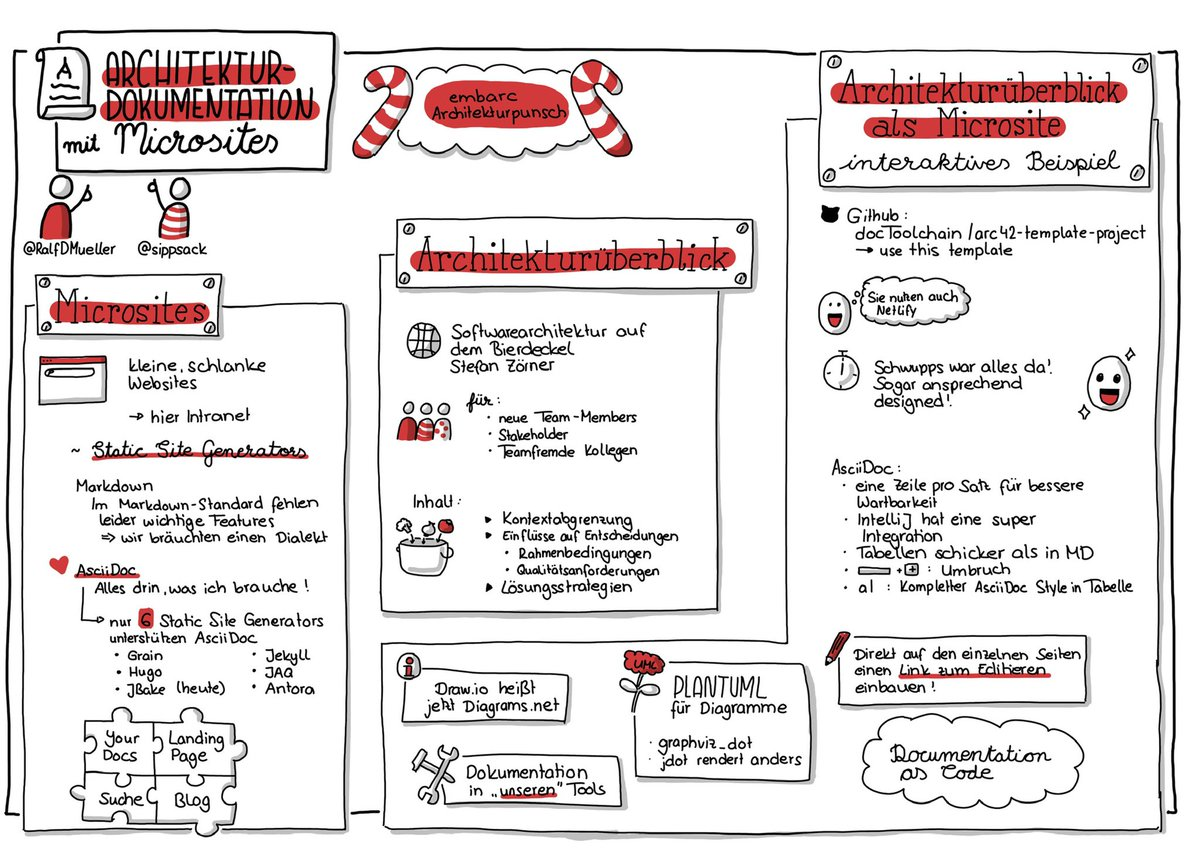 ARCHITEKTUR-
DOKUMENTATION
mit Microsites
@RalfDMueller
@sippsack
embarc
Architekturpunsch
Microsites
kleine, schlanke
Websites
→ hier Intranet
~ Static Site Generators
Markdown
Im Markdown-Standard fehlen
leider wichtige Features
⇒ wir bräuchten einen Dialekt
AsciiDoc
Alles drin, was ich brauche!
nur 6 Static Site Generators
unterstützen AsciiDoc
• Grain
• Hugo
• JBake (heute)
• Jekyll
• JAQ
• Antora
Your
Docs
Landing
Page
Suche
Blog
Architekturüberblick
Softwarearchitektur auf
dem Bierdeckel
Stefan Zörner
für:
• neue Team-Members
• Stakeholder
• Teamfremde Kollegen
Inhalt:
▸ Kontextabgrenzung
▸ Einflüsse auf Entscheidungen
• Rahmenbedingungen
• Qualitätsanforderungen
▸ Lösungsstrategien
i
Draw.io heißt
jetzt Diagrams.net
Dokumentation
in „unseren" Tools
UML
PLANTUML
für Diagramme
· graphviz_dot
· jdot rendert anders
Architekturüberblick
als Microsite
interaktives Beispiel
Github:
docToolchain/arc42-template-project
→ use this template
Sie nutzen auch
Netlify
Schwupps war alles da!
Sogar ansprechend
designed!
AsciiDoc:
· eine Zeile pro Satz für bessere
Wartbarkeit
· IntelliJ hat eine super
Integration
· Tabellen schicker als in MD
· + + : Umbruch
· a| : Kompletter AsciiDoc Style in Tabelle
Direkt auf den einzelnen Seiten
einen Link zum Editieren
einbauen!
Documentation
as Code